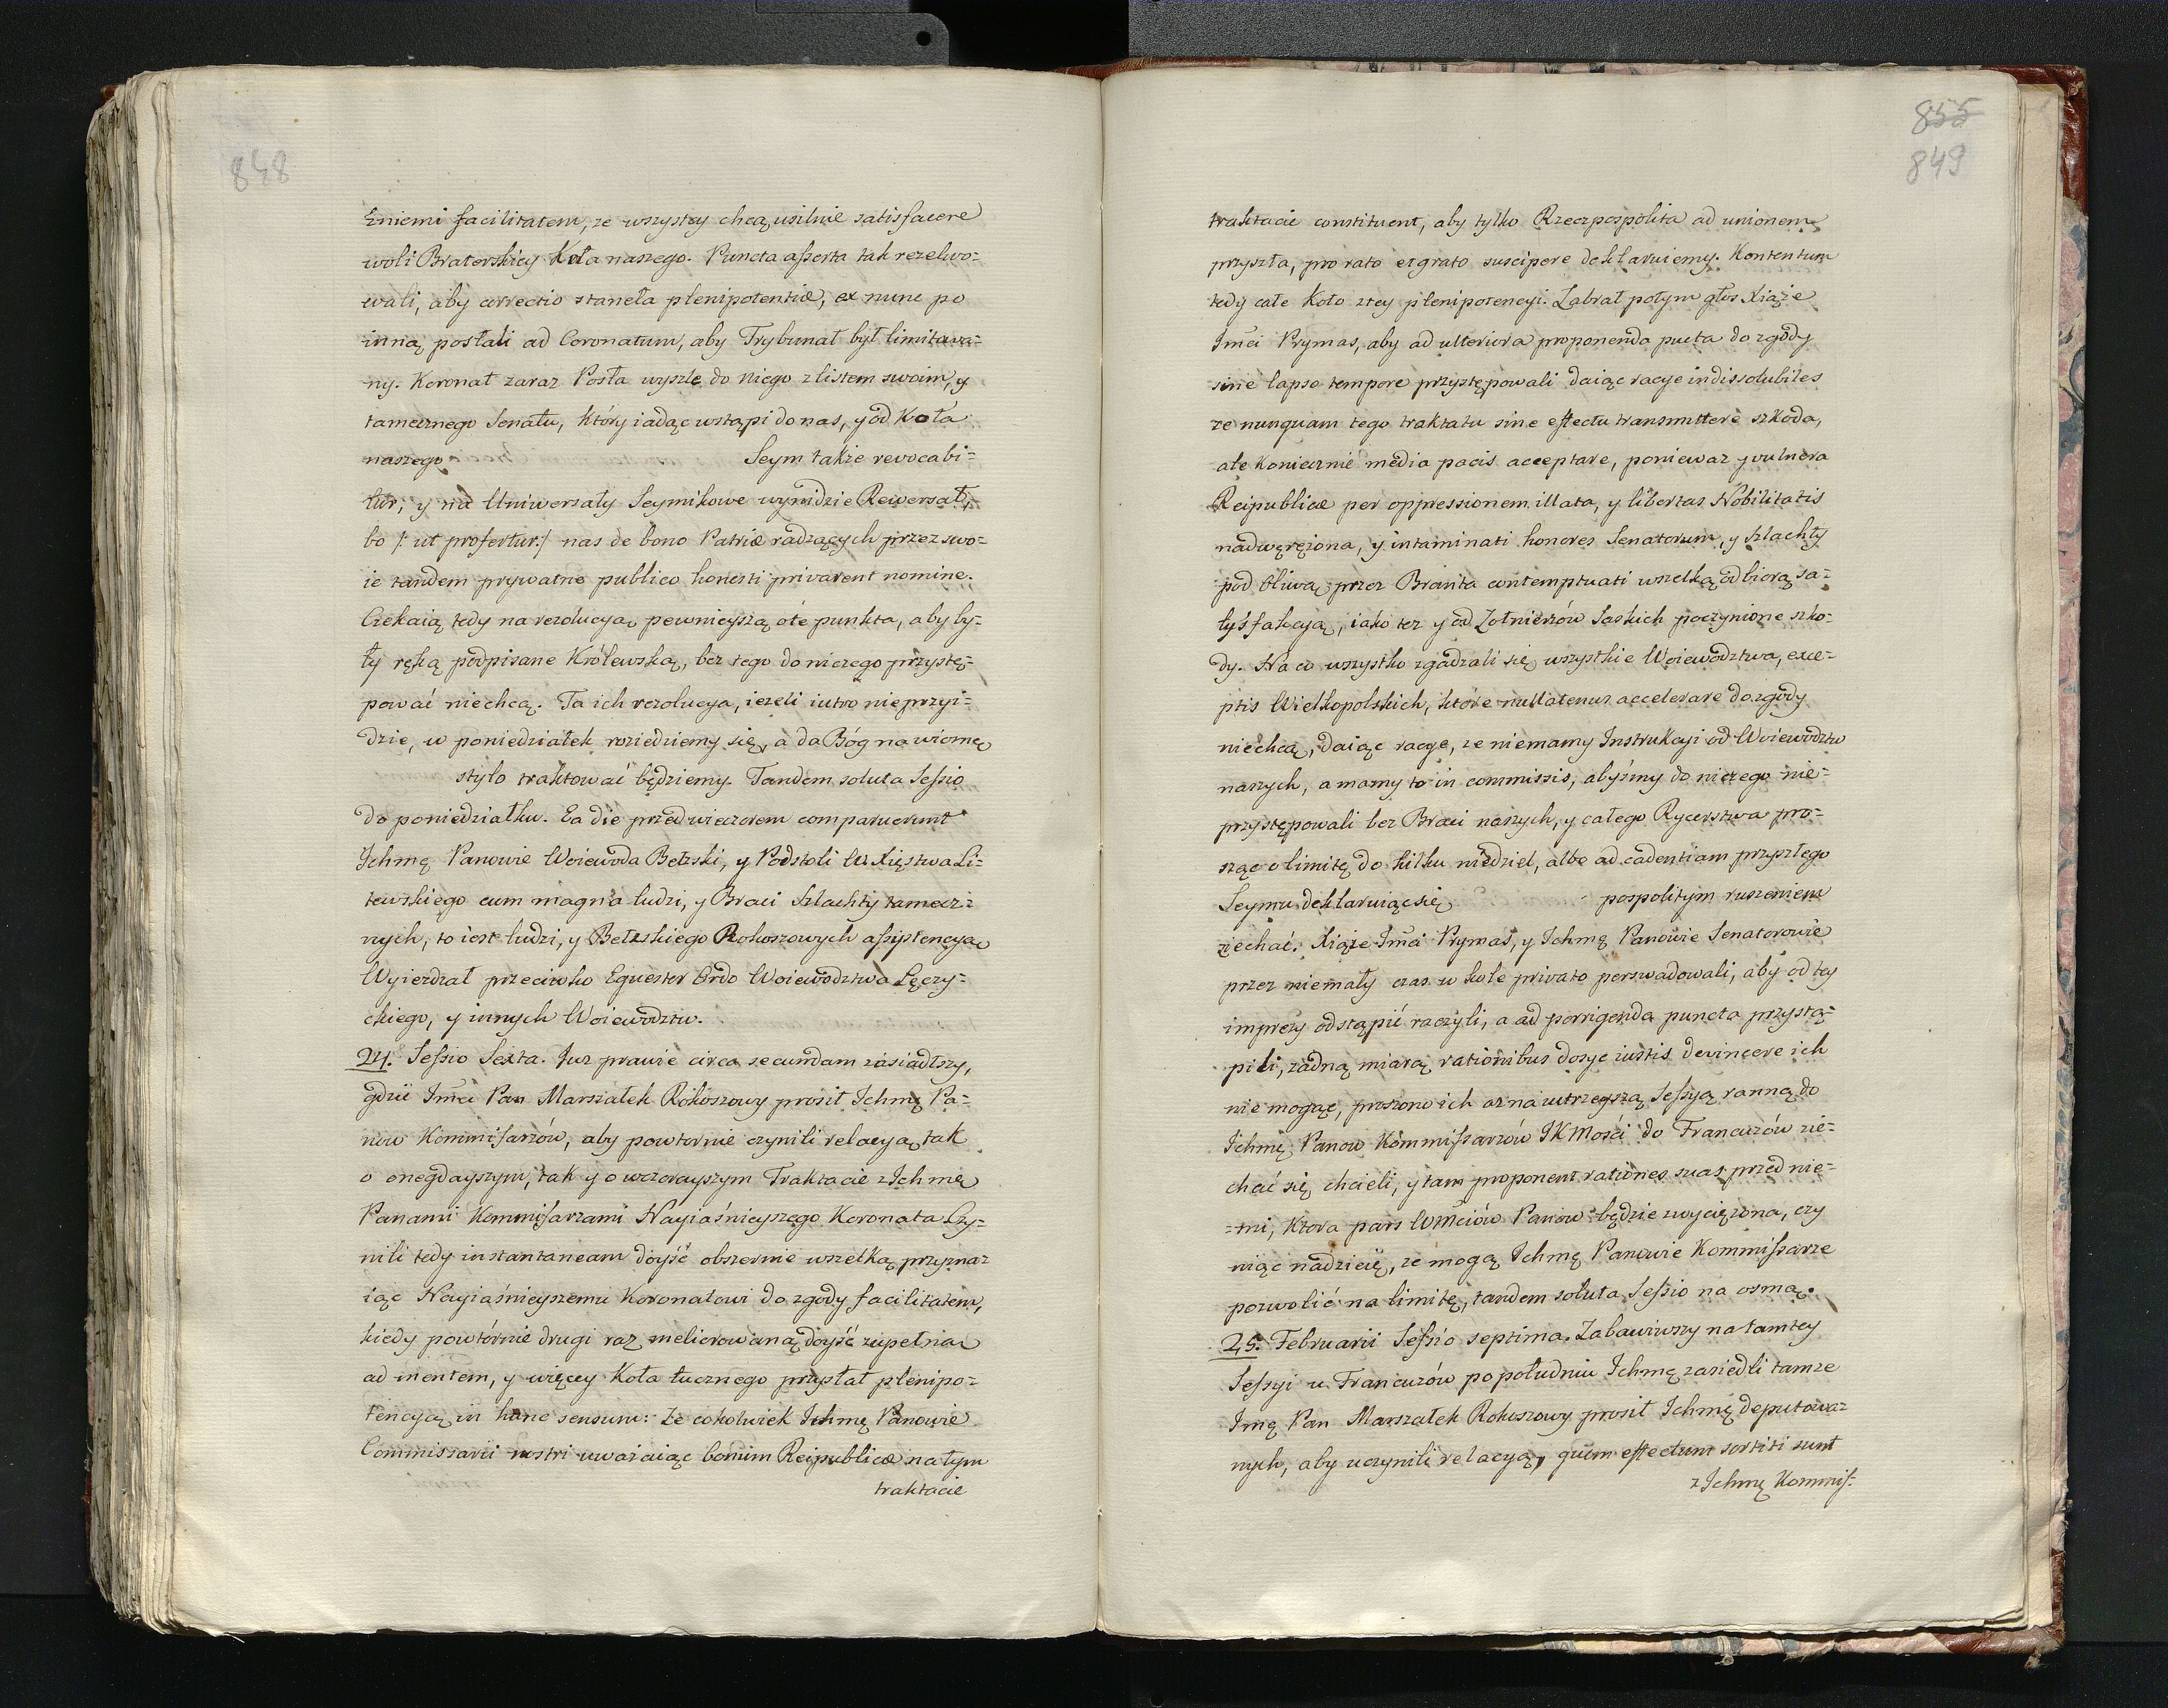 848
zniemi facilitatem, ze wszyscy chcą usilnie satisfacere
woli Braterskiey Koła naszego. Puncta asserta tak rezelwo=
wali, aby correctio staneła plenipotentiæ, ex nunc po
inną posłali ad Coronatum, aby Trybunał był limitowa=
ny. Koronat zaraz Posła wyszle do niego z listem swoim, y
tamecznego Senatu, który iadąc wstąpi do nas, y od Koła
naszego Seym także revocabi=
tur, y na Uniwersały Seymikowe wynidzie Rewersał,
bo /: ut profertur:/ nas de bono Patriæ radzących przez swo=
ie tandem prywatne publico honesti privarent nomine.
Czekaią tedy na rezolucyą pewnieyszą o te punkta, aby by=
ły ręką podpisane Królewską, bez tego do niczego przystę=
pować niechcą. Ta ich rezolucya, ieżeli iutro nieprzyi=
dzie, w poniedziałek roziedziemy się, a da Bóg na wiosnę
stylo traktować będziemy. Tandem soluta Sessio
do poniedziałku. Ea die przed wieczorem comparuerunt
Ichmę Panowie Woiewoda Bełzski, y Podstoli W. Xięstwa Li=
tewskiego cum magna ludzi, y Braci Szlachty tamecz=
nych, to iest ludzi, y Bełzskiego Rokoszowych assistencyą
Wyiezdzał przeciwko Equester Ordo Woiewodztwa Łęczy=
ckiego, y innych Woiewodztw.
24. Sessio Sexta. Juz prawie circa secundam zasiadłszy,
gdzie Imci Pan Marszałek Rokoszowy prosił Ichmę Pa=
now Kommissarzów, aby powtornie czynili relacyą tak
o onegdayszym, tak y o wczorayszym Traktacie z Ichmę
Panami Kommissarzami Nayiaśnieyszego Koronata Czy=
nili tedy instantaneam dość obszernie wszelką przyzna=
iąc Nayiaśnieyszemu Koronatowi do zgody facilitatem,
kiedy powtórnie drugi raz meliorowaną dość zupełnie
ad mentem, y więcey Koła tucznego przysłał plenipo=
tencyą in hanc sensum: Ze cokolwiek Ichmę Panowie
Commissarii nostri uważaiąc bonum Reipublicæ na tym
traktacie
855
849
traktacie constituent, aby tylko Rzeczpospolita ad unionem
przyszła, pro rato et grato suscipere deklaruiemy. Kontentum
tedy całe Koło z tey plenipotencyi. Zabrał potym głos Xiąże
Imci Prymas, aby ad ulteriora proponenda pucta do zgody
sine lapso tempore przystępowali daiąc racye indissolubiles
ze nunquam tego traktatu sine effectu transmittere szkoda,
ale koniecznie media pacis acceptare, poniewaz y vulnera
Reipublicæ per oppressionem illata, y libertas Nobilitatis
nadwęręzona, y intaminati honores Senatorum, y szlachty
pod Oliwą przez Branta contemptuati wszelką odbiorą sa=
tysfakcyą, iako tez y od Zołnierzów Saskich poczynione szko=
dy. Na co wszystko zgadzali się wszystkie Woiewodztwa, exce=
ptis Wielkopolskich, które nullatenus accelerare do zgody
niechcą, daiąc racye, ze niemamy Instrukcyi od Woiewodztw
naszych, a mamy to in commissis, abyśmy do niczego nie=
przystępowali bez Braci naszych, y całego Rycerstwa pro=
sząc o limitę do kilku niedziel, albo ad cadentiam przyszłego
Seymu deklaruiąc się pospolitym ruszeniem
ziechać. Xiąże Imci Prymas, y Ichmę Panowie Senatorowie
przez niemały czas w kole privato perswadowali, aby od tey
imprezy odstąpić raczyli, a ad porrigenda puncta przystą=
pili, zadną miarą rationibus dosyc iustis devincere ich
nie mogąc, proszono ich az na iutrzeyszą Sessyą ranną do
Ichmę Panow Kommissarzów JKMości do Francuzów zie=
chać się chcieli, y tam proponent rationes suas przed nie=
=mi, ktora pars WMciów Panow będzie zwycięzona, czy
niąc nadzieię, ze mogą Ichmę Panowie Kommissarze
pozwolić na limitę, tandem soluta Sessio na osmą.
25. Februarii Sessio septima. Zabawiwszy na tamtey
Sessyi u Francuzów po południu Ichmę zasiedli tamze
Imę Pan Marszałek Rokoszowy prosił Ichmę deputowa=
nych, aby uczynili relacyą, quem effectum sortiti sunt
z Ichmę Kommiss: